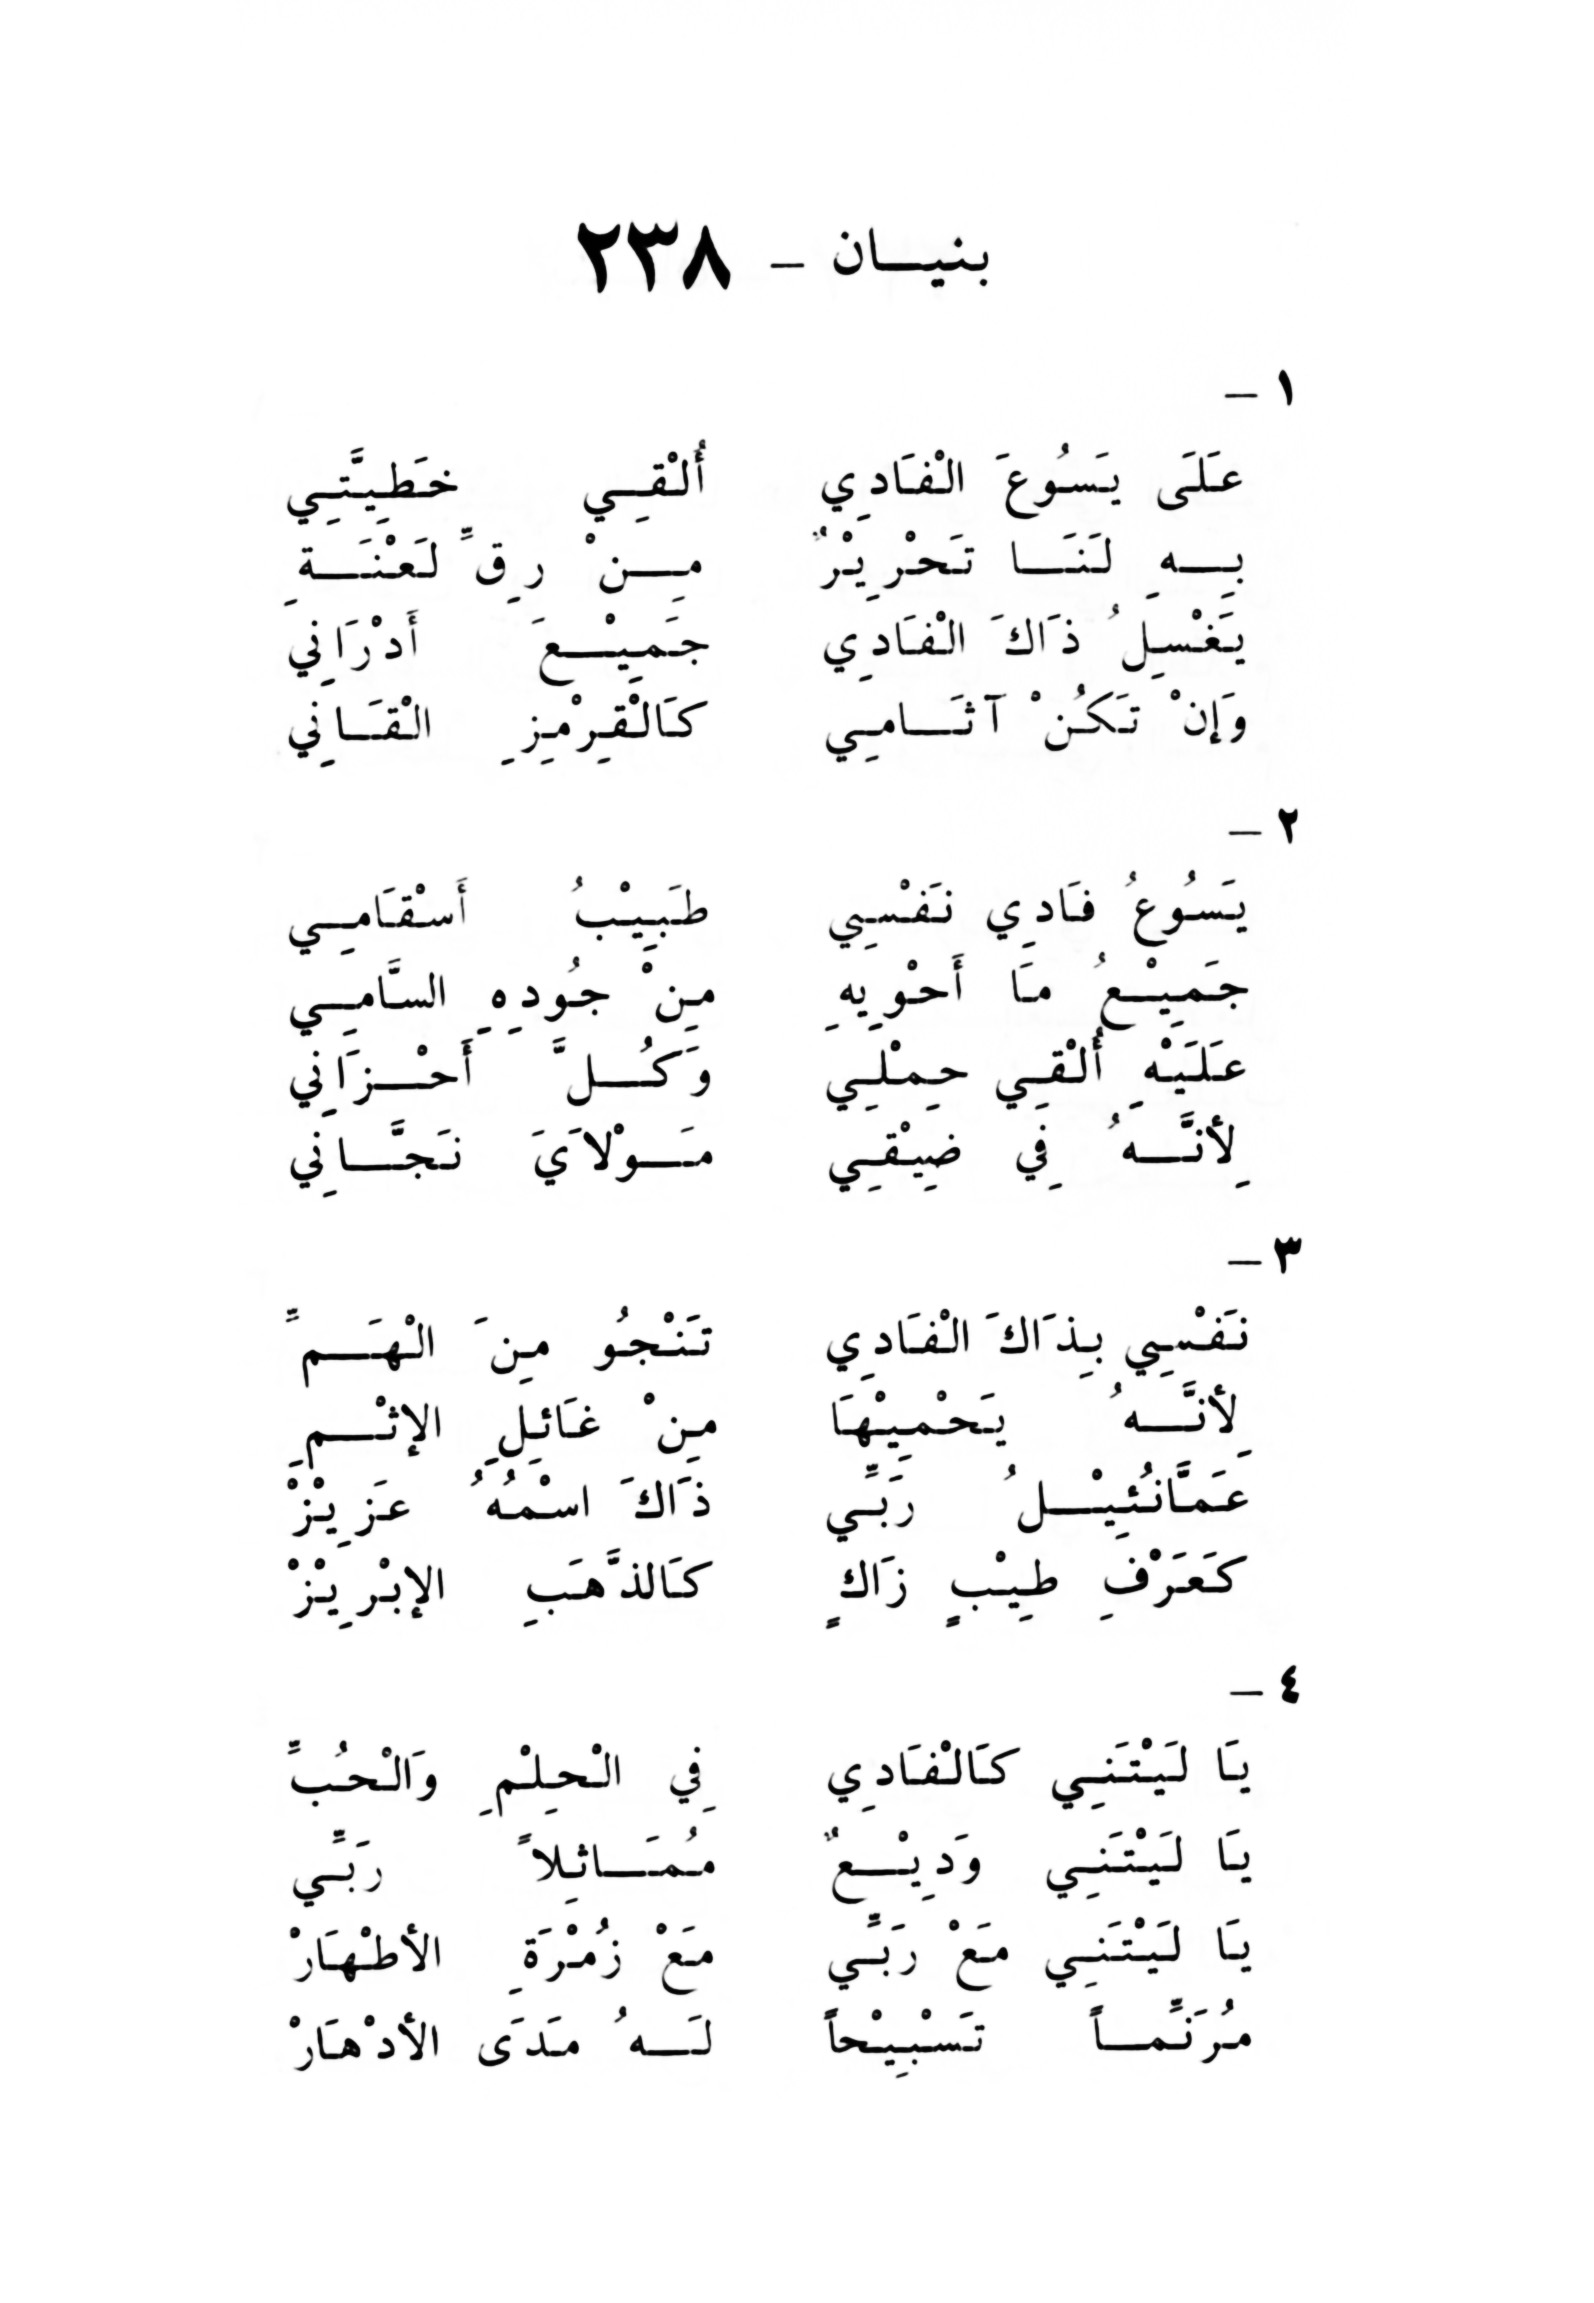 بنيـــان – ٢٣٨
١ –
عَلَى يَسُوعَ الْفَادِي أُلْقِي خَطِيَّتِي
بِهِ لَنَا تَحْرِيْرٌ مِنْ رِقِّ لَعْنَةِ
يَغْسِلُ ذَاكَ الْفَادِي جَمِيْعَ أَدْرَانِي
وَإِنْ تَكُنْ آثَامِي كَالْقِرْمِزِ الْقَانِي
٢ –
يَسُوعُ فَادِي نَفْسِي طَبِيْبُ أَسْقَامِي
جَمِيْعُ مَا أَحْوِيهِ مِنْ جُودِهِ السَّامِي
عَلَيْهِ أُلْقِي حِمْلِي وَكُلَّ أَحْزَانِي
لِأنَّهُ فِي ضِيْقِي مَوْلاَيَ نَجَّانِي
٣ –
نَفْسِي بِذَاكَ الْفَادِي تَنْجُو مِنَ الْهَمِّ
لِأنَّهُ يَحْمِيْهَا مِنْ غَائِلِ الإثْمِ
عَمَّانُئِيْلُ رَبِّي ذَاكَ اسْمُهُ عَزِيْزْ
كَعَرْفِ طِيْبٍ زَاكٍ كَالذَّهَبِ الإبْرِيْزْ
٤ –
يَا لَيْتَنِي كَالْفَادِي فِي الْحِلْمِ وَالْحُبِّ
يَا لَيْتَنِي وَدِيْعٌ مُمَاثِلاً رَبِّي
يَا لَيْتَنِي مَعْ رَبِّي مَعْ زُمْرَةِ الأطْهَارْ
مُرَنِّماً تَسْبِيْحاً لَهُ مَدَى الأدْهَارْ